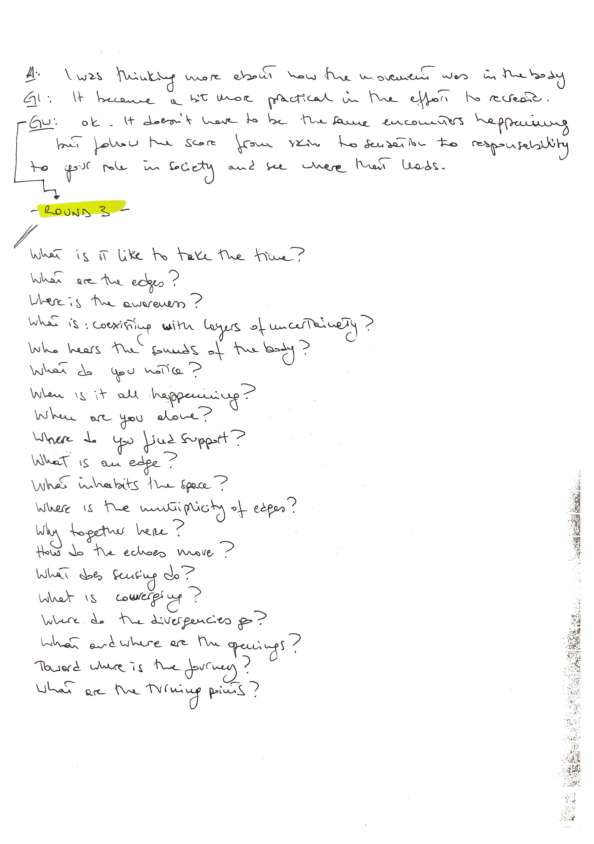 A: I was thinking more about how the movement was in the body
GI: It became a bit more practical in the effort to recreate.
GW: ok. It doesn't have to be the same encounters happening
but follow the score from skin to sensation to responsability
to your role in society and see where that leads.
- ROUND 3 -
What is it like to take the time?
What are the edges?
Where is the awareness?
What is: coexisting with layers of uncertainety?
Who hears the sounds of the body?
What do you notice?
When is it all happening?
When are you alone?
Where do you find support?
What is an edge?
What inhabits the space?
Where is the multiplicity of edges?
Why together here?
How do the echoes move?
What does sensing do?
What is converging?
Where do the divergencies go?
What and where are the openings?
Toward where is the journey?
What are the turning points?